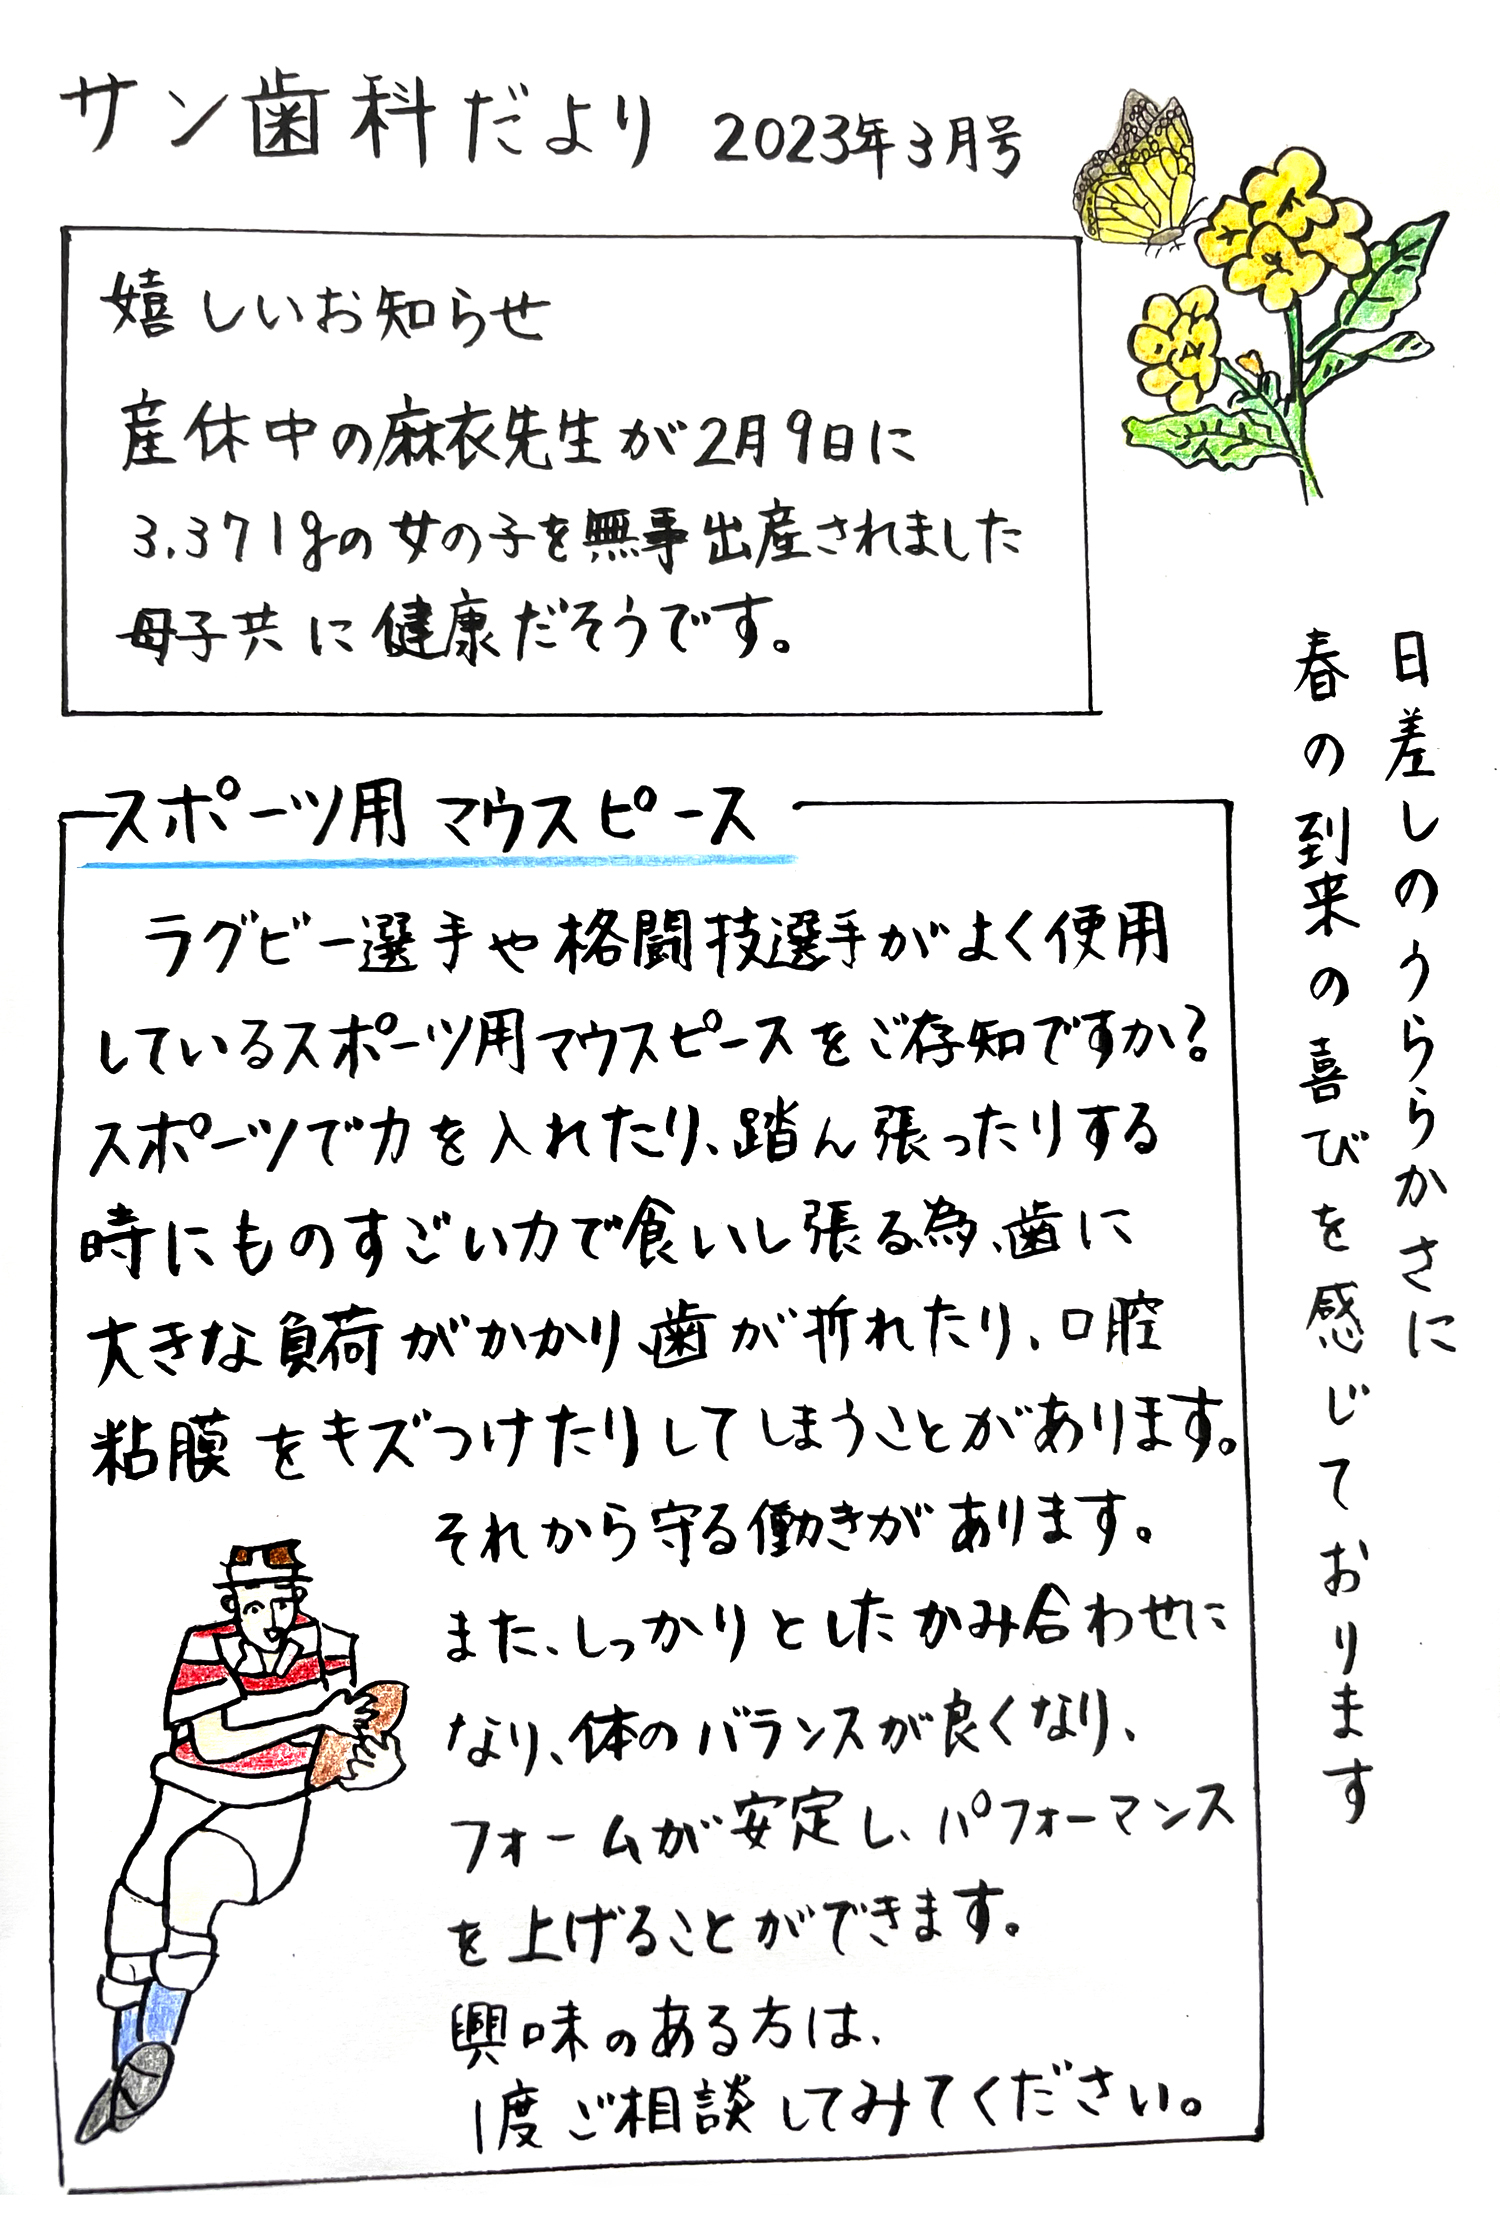 サン歯科だより 2023年3月号
嬉しいお知らせ
産休中の麻衣先生が2月9日に
3.371gの女の子を無事出産されました
母子共に健康だそうです。
日差しのうららかさに
春の到来の喜びを感じております
スポーツ用マウスピース
ラグビー選手や格闘技選手がよく使用
しているスポーツ用マウスピースをご存知ですか?
スポーツで力を入れたり、踏ん張ったりする
時にものすごい力で食いし張る為、歯に
大きな負荷がかかり、歯が折れたり、口腔
粘膜をキズつけたりしてしまうことがあります。
それから守る働きがあります。
また、しっかりとしたかみ合わせに
なり、体のバランスが良くなり、
フォームが安定し、パフォーマンス
を上げることができます。
興味のある方は、
1度ご相談してみてください。